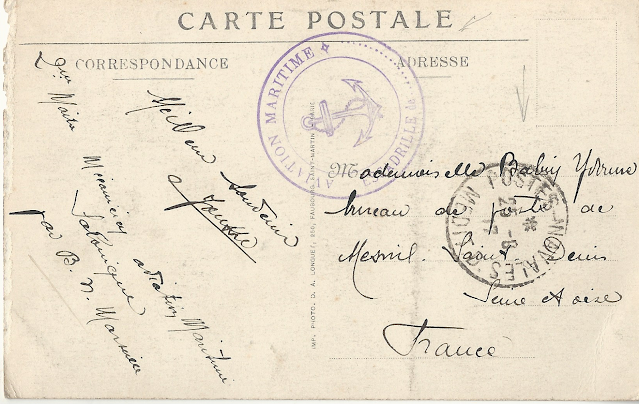 CARTE POSTALE
CORRESPONDANCE
ADRESSE
AVIATION MARITIME
ESCADRILLE de
Meilleur Souvenir
2me Maître Mécanicien
aviation Maritime
Salonique
par B. N. Marseille
IMP. PHOTO. D. A. LONGUET, 250, FAUBOURG SAINT-MARTIN, PARIS
Mademoiselle Babin Yvonne
bureau de poste de
Mesnil Saint Denis
Seine et Oise
France
POSTES NAVALES
25 -8
17